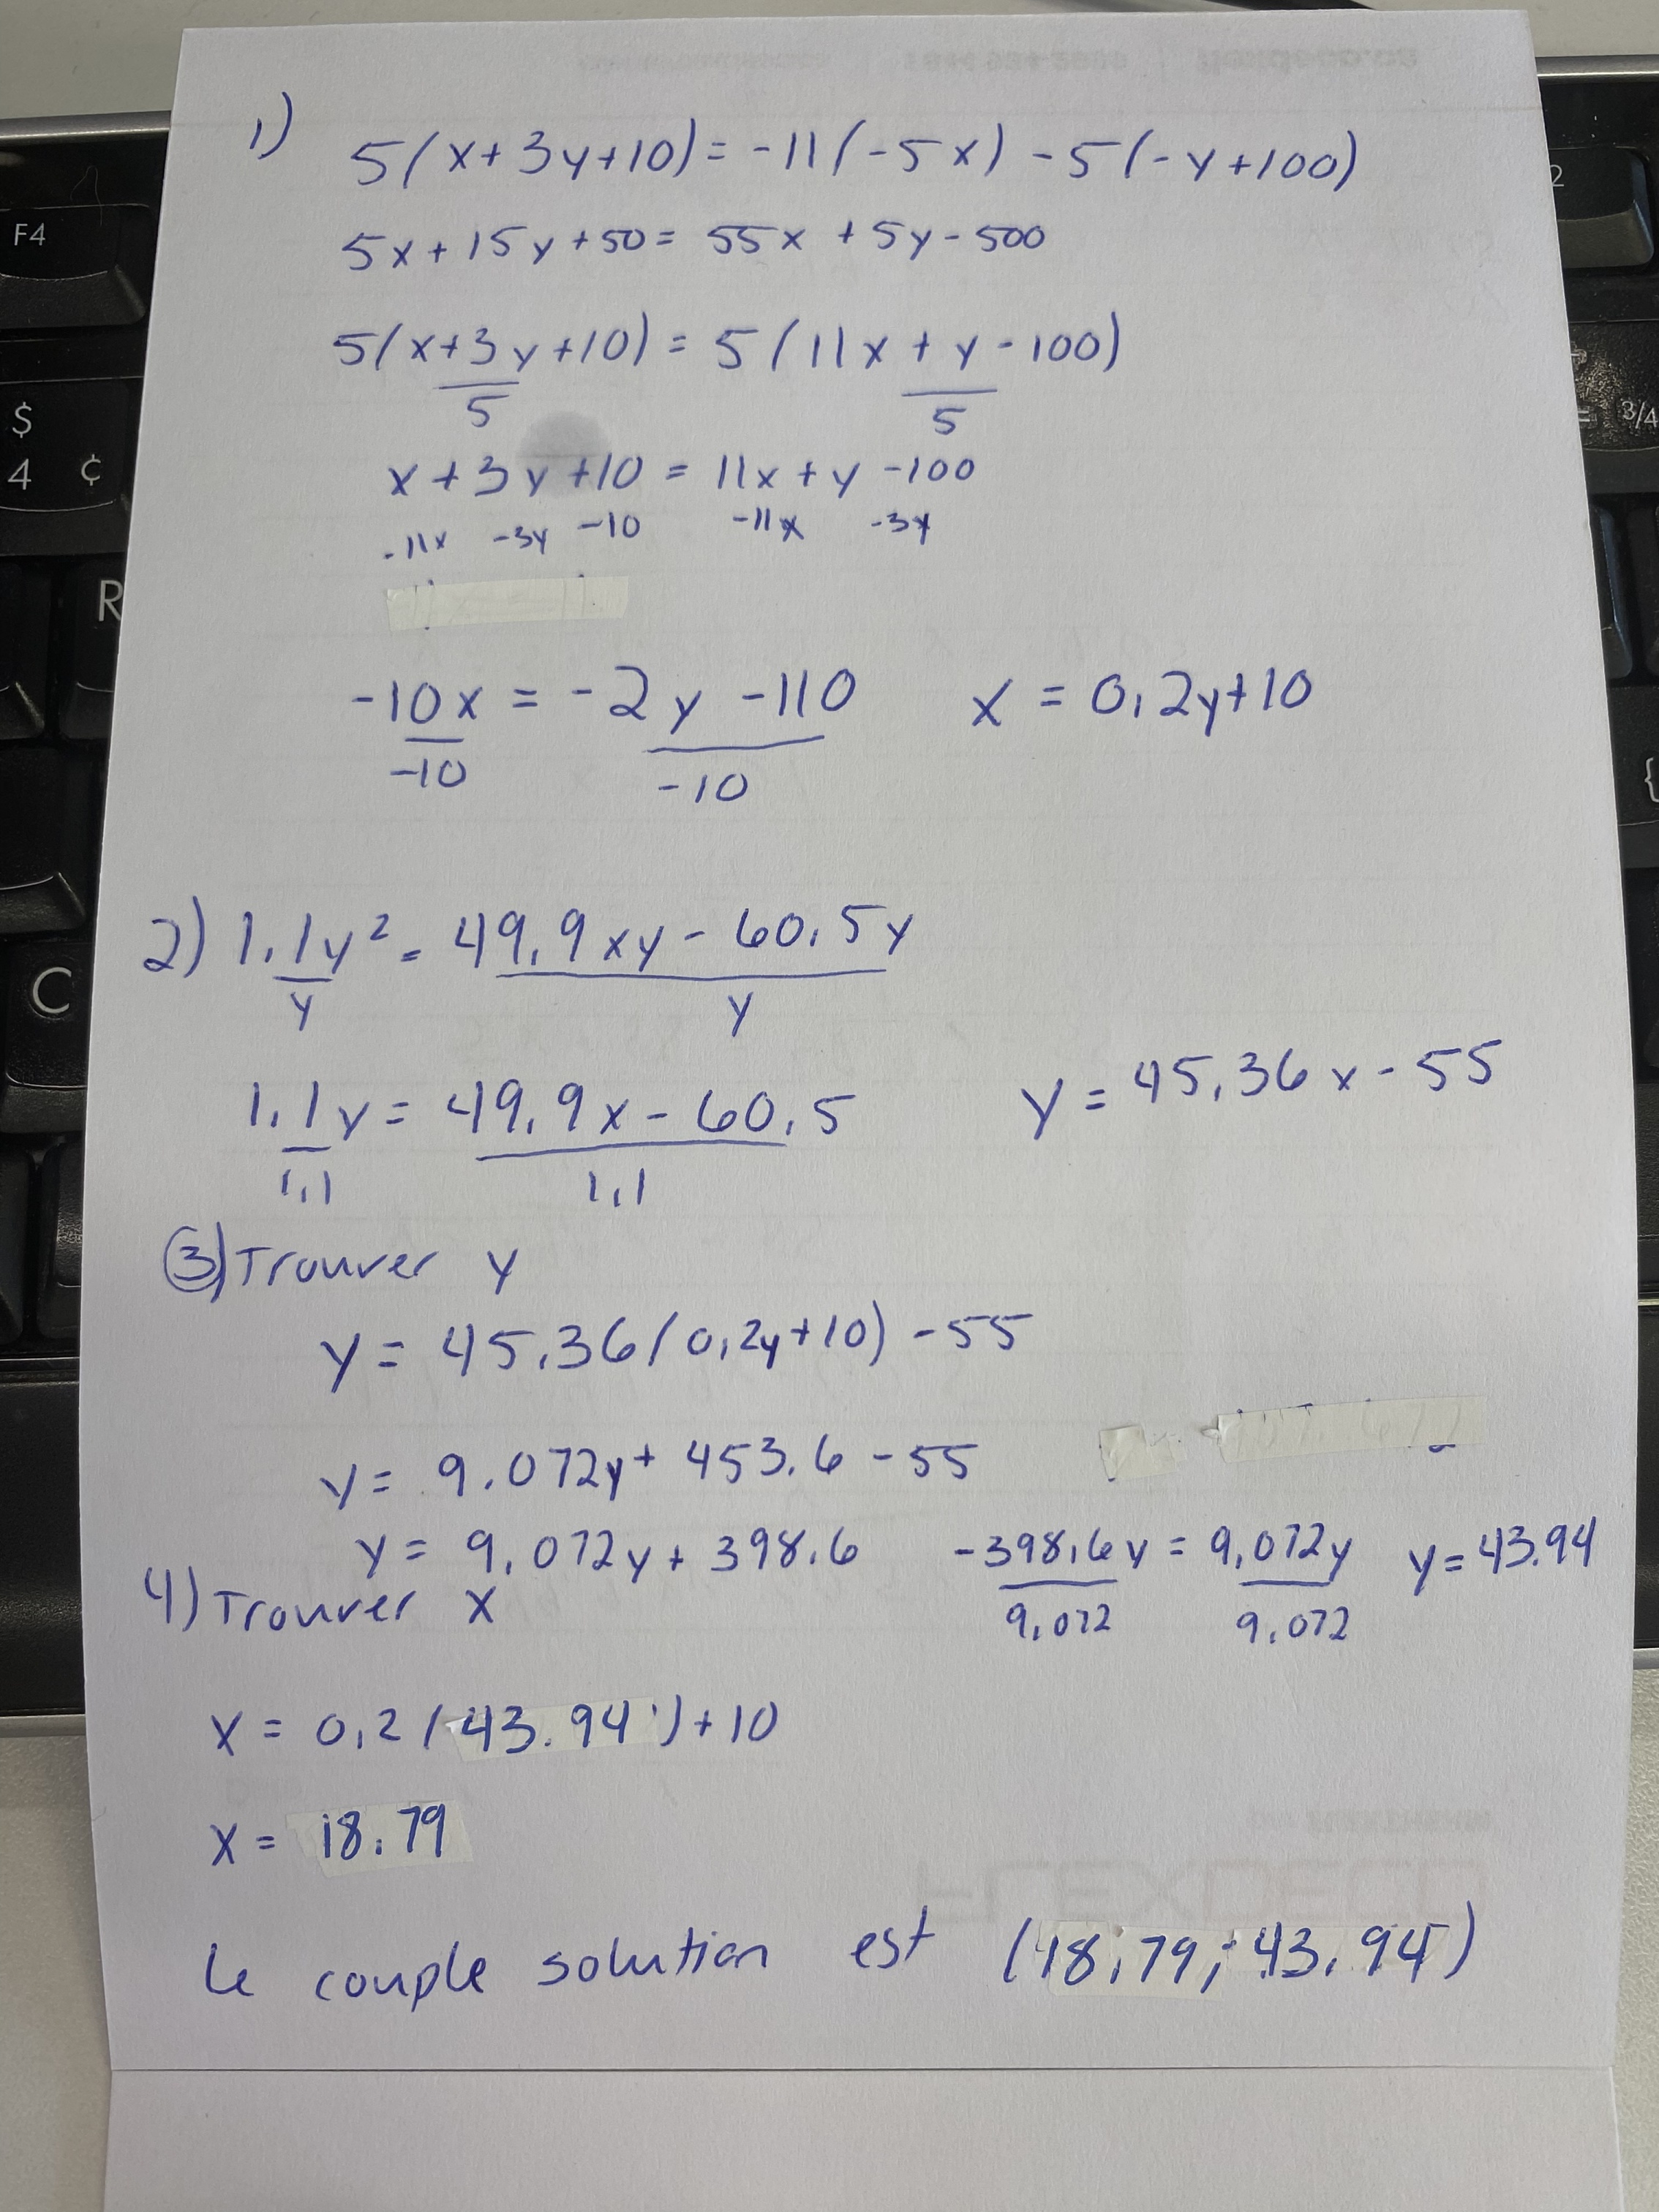 1) 5(x+3y+10) = -11(-5x) -5(-y+100)
5x+15y+50 = 55x +5y-500
5(x+3y+10) = 5(11x+y-100)
5 5
x+3y+10 = 11x+y-100
-11x -3y -10 -11x -3y
-10x = -2y -110 x = 0,2y+10
-10 -10
2) 1.1y² = 49,9xy - 60,5y
y y
1,1y = 49,9x - 60,5 y = 45,36x - 55
1,1 1,1
3) Trouver y
y = 45,36(0,2y+10) -55
y = 9.072y + 453.6 -55
y = 9,072y + 398.6 -398,6y = 9,072y y = 43.94
9,072 9.072
4) Trouver x
x = 0,2(43.94)+10
x = 18.79
Le couple solution est (18,79; 43,94)
F4
$
4 ¢
R
C
2
=
3/4
{
FLEXDECO